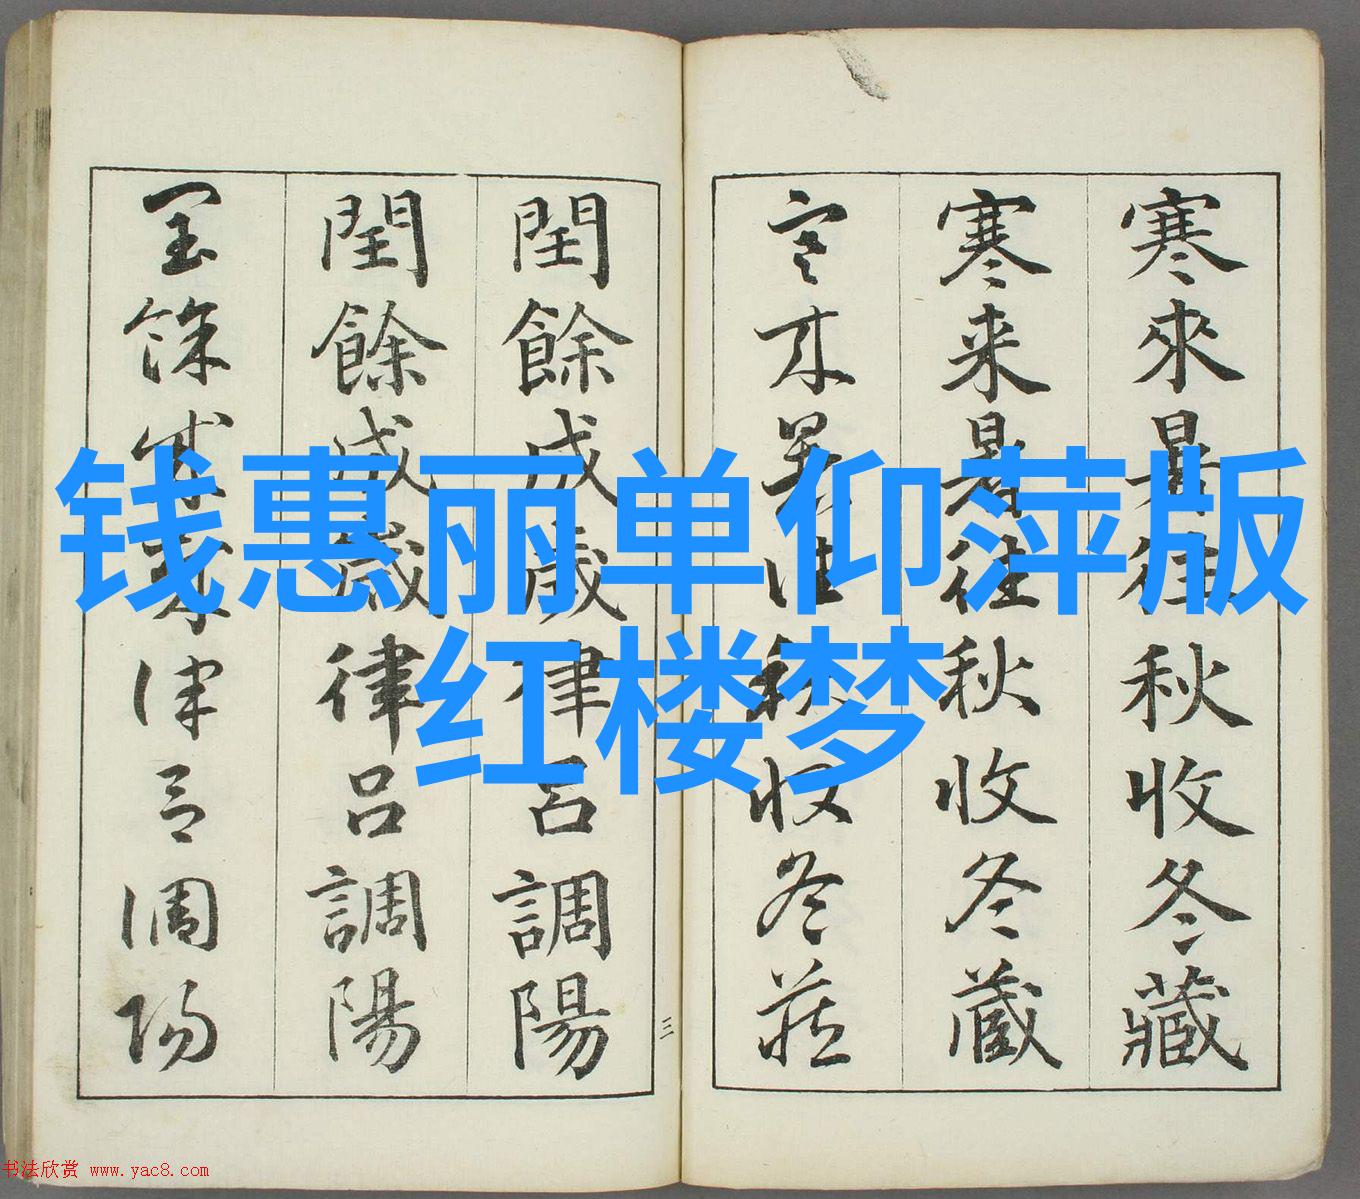 钱惠丽单仰萍版
红楼梦
寒來暑往秋收冬藏
寒来暑往秋收冬蔵
寒来暑往秋收冬藏
閏餘成歲律呂調陽
閏餘成歲律呂調陽
閏餘成歲律呂調陽
三
书法欣赏 www.yac8.com